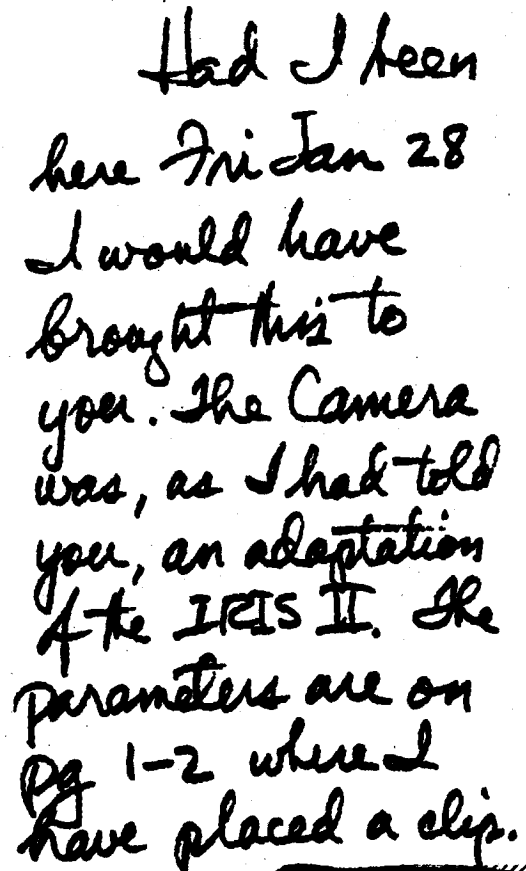 Had I been
here Fri Jan 28
I would have
brought this to
you. The Camera
was, as I had told
you, an adaptation
of the IRIS II. The
parameters are on
pg 1-2 where I
have placed a clip.